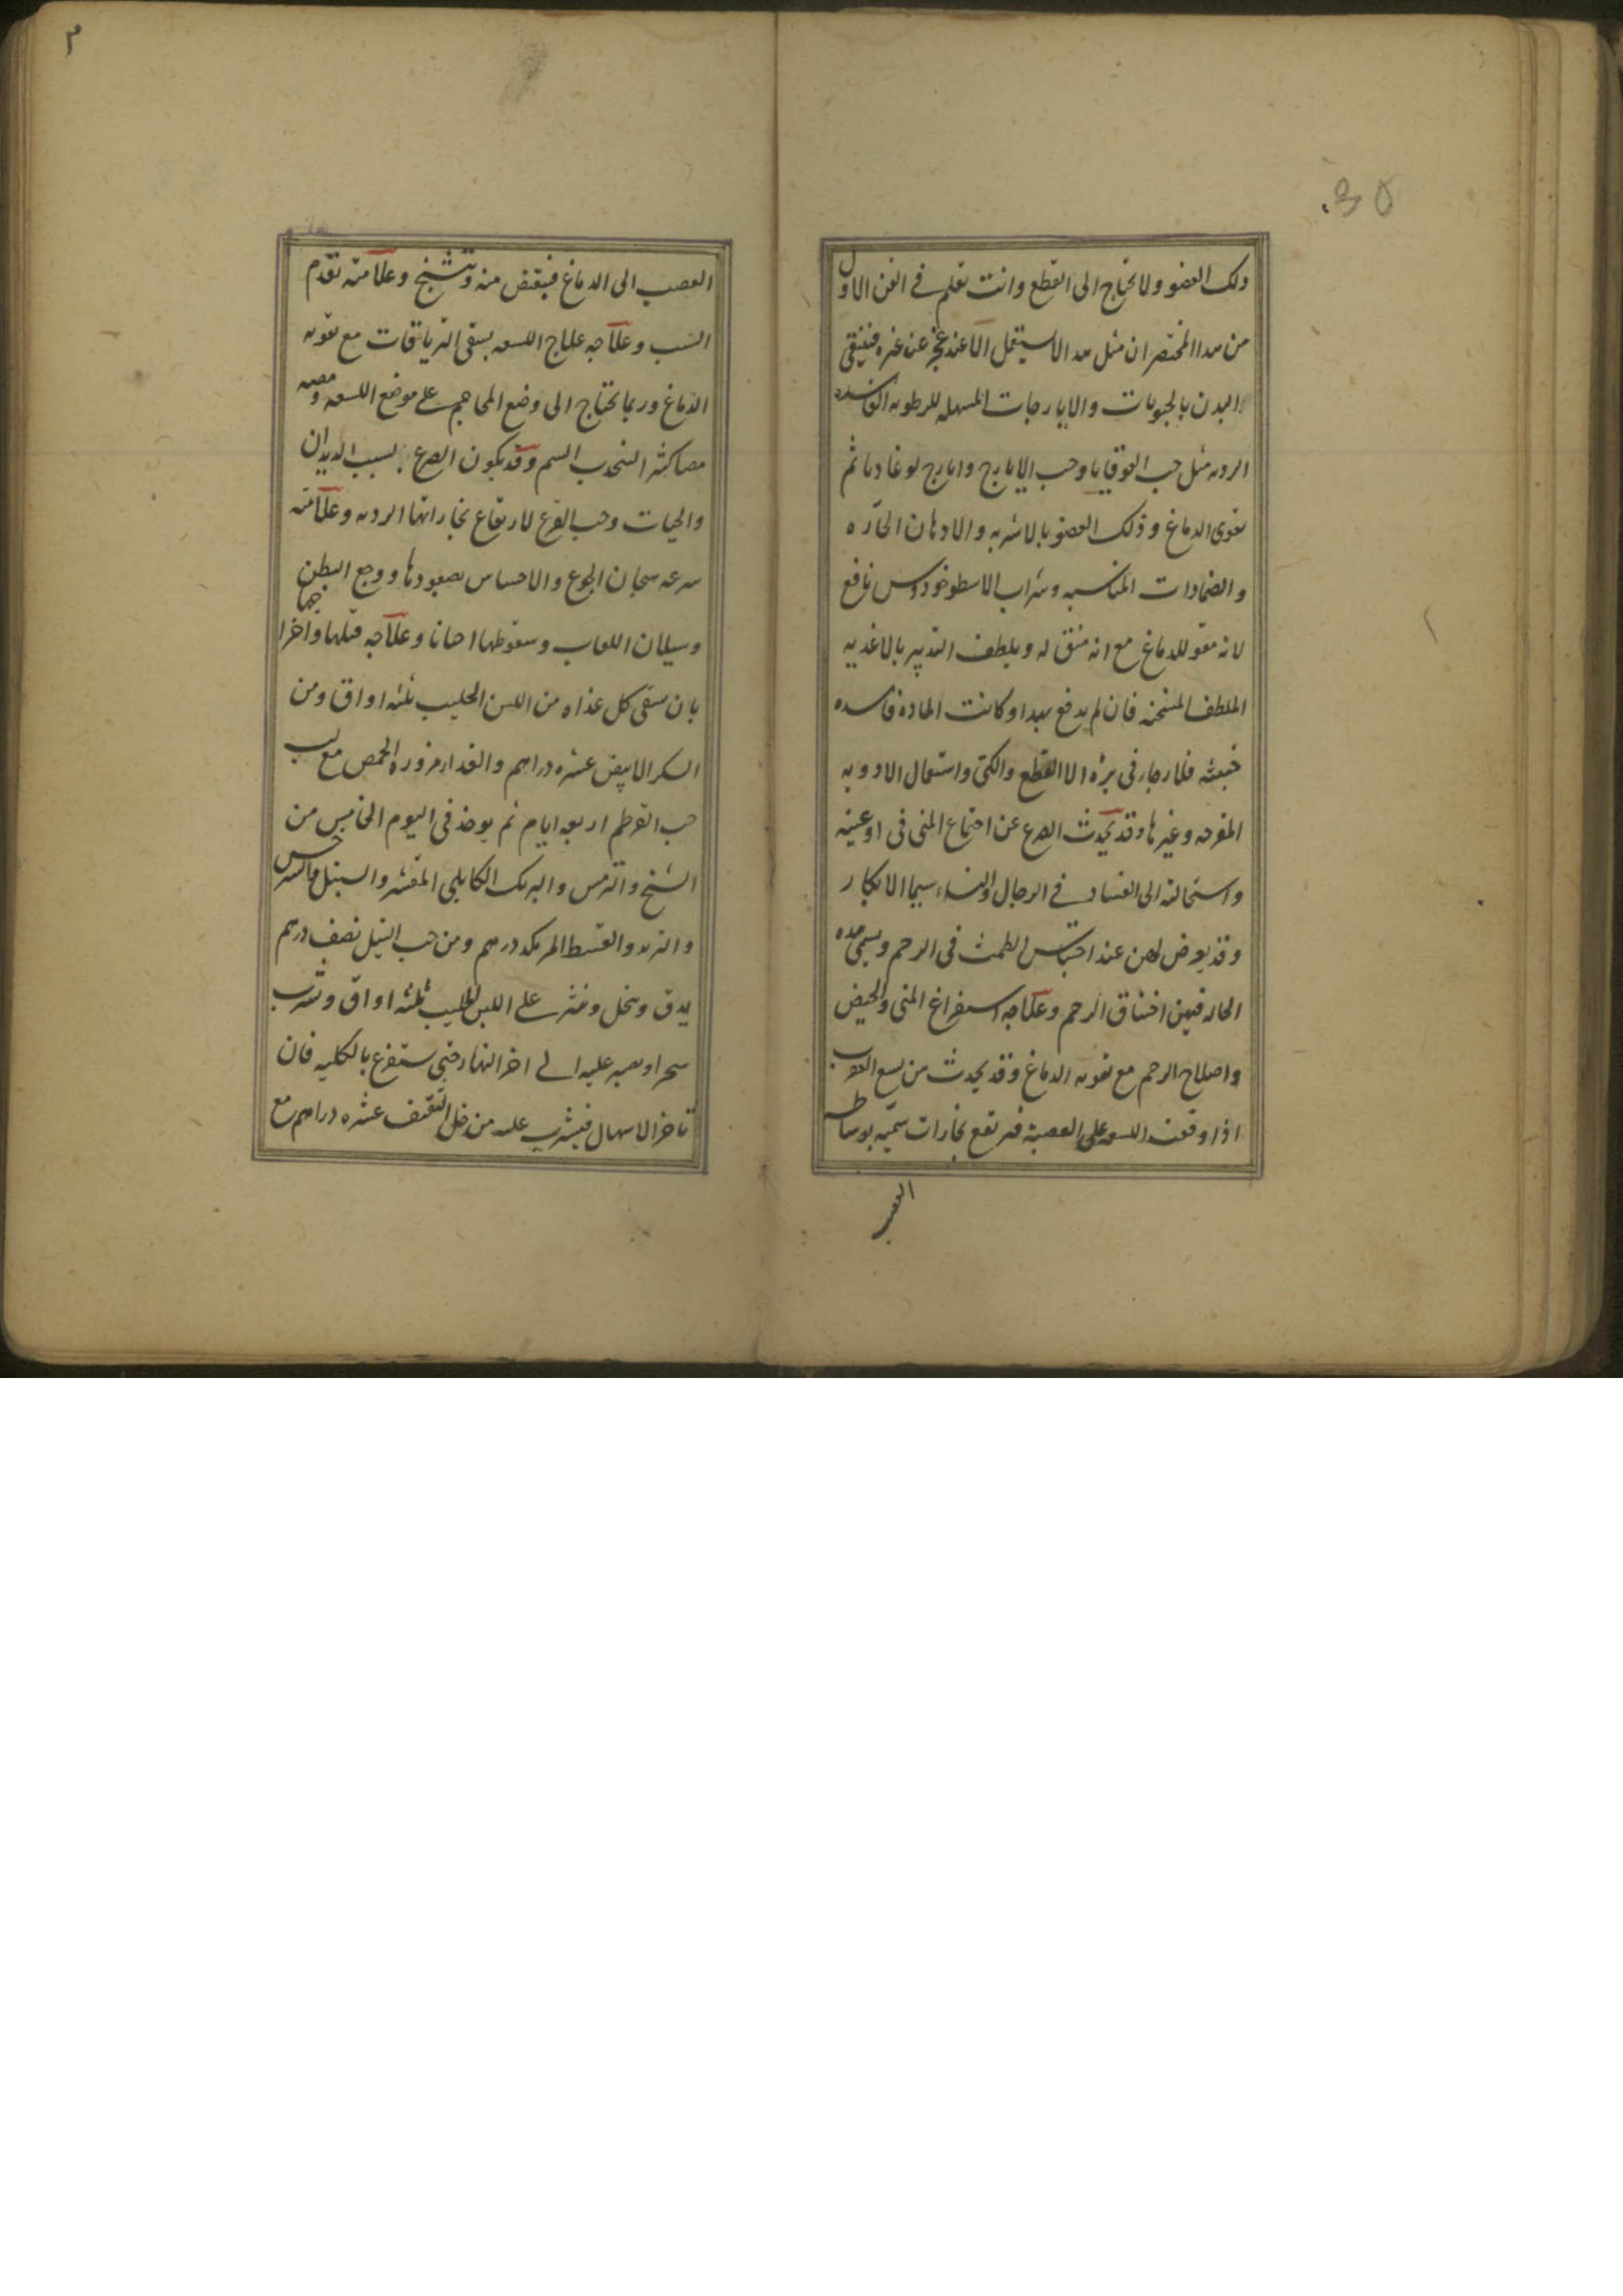 ذلك العضو ولا تحتاج الى القطع وانت تعلم فى الفن الاول
من هدا المختصر ان مثل هدا لا يستعمل الا عند عجز عن غيره فينقى
البدن بالحبوبات والايارجات المسهله للرطوبه الفاسده
الرديه مثل حب القوقايا وحب الايارج وايارج لوغاديا ثم
يقوى الدماغ وذلك العضو بالاشربه والادهان الحاره
والضمادات المناسبه وشراب الاسطوخودوس نافع
لانه مقو للدماغ مع انه منق له ويلطف التدبير بالاغذيه
الملطفه المسخنه فان لم يدفع بهدا وكانت الماده فاسده
خبيثه فلا رجاء فى برئه الا القطع والكى واستعمال الادويه
المقرحه وغيرها وقد يحدث الصرع عن اجتماع المنى فى اوعيته
واستحالته الى الفساد فى الرجال والنساء سيما الابكار
وقد يعرض لهن عند احتباس الطمث فى الرحم ويسمى هده
الحاله فيهن اختناق الرحم وعلاجه استفراغ المنى والحيض
واصلاح الرحم مع تقويه الدماغ وقد يحدث من لسع العقرب
اذا وقعت اللسعه على العصبة فترتفع بخارات سميه بوساطه
العصب
٣
العصب الى الدماغ فينقبض منه ويتشنج وعلامته تقدم
السبب وعلاجه علاج اللسعه بسقى الترياقات مع تقويه
الدماغ وربما تحتاج الى وضع المحاجم على موضع اللسعه ومصه
مصا كثيرا لينجذب السم وقد يكون الصرع بسبب الديدان
والحيات وحب القرع لارتفاع بخاراتها الرديه وعلامته
سرعه هيجان الجوع والاحساس بصعودها ووجع البطن
وسيلان اللعاب وسقوطها احيانا وعلاجه قتلها واخراجها
بان يسقى كل غداه من اللبن الحليب ثلثه اواق ومن
السكر الابيض عشره دراهم والغدا مزوره الحمص مع لب
حب القرطم اربعه ايام ثم يوخذ فى اليوم الخامس من
الشيح والترمس والبرنك الكابلى المقشر والسنبل والسرخس
والتربد والقسط المر يكد درهم ومن حب النيل نصف درهم
يدق وينخل وينثر على اللبن الحليب ثلثه اواق ويشرب
سحرا ويصبر عليه الى اخر النهار حتى يستفرغ بالكليه فان
تاخر الاسهال فيشرب عليه من خل الثقيف عشره دراهم مع